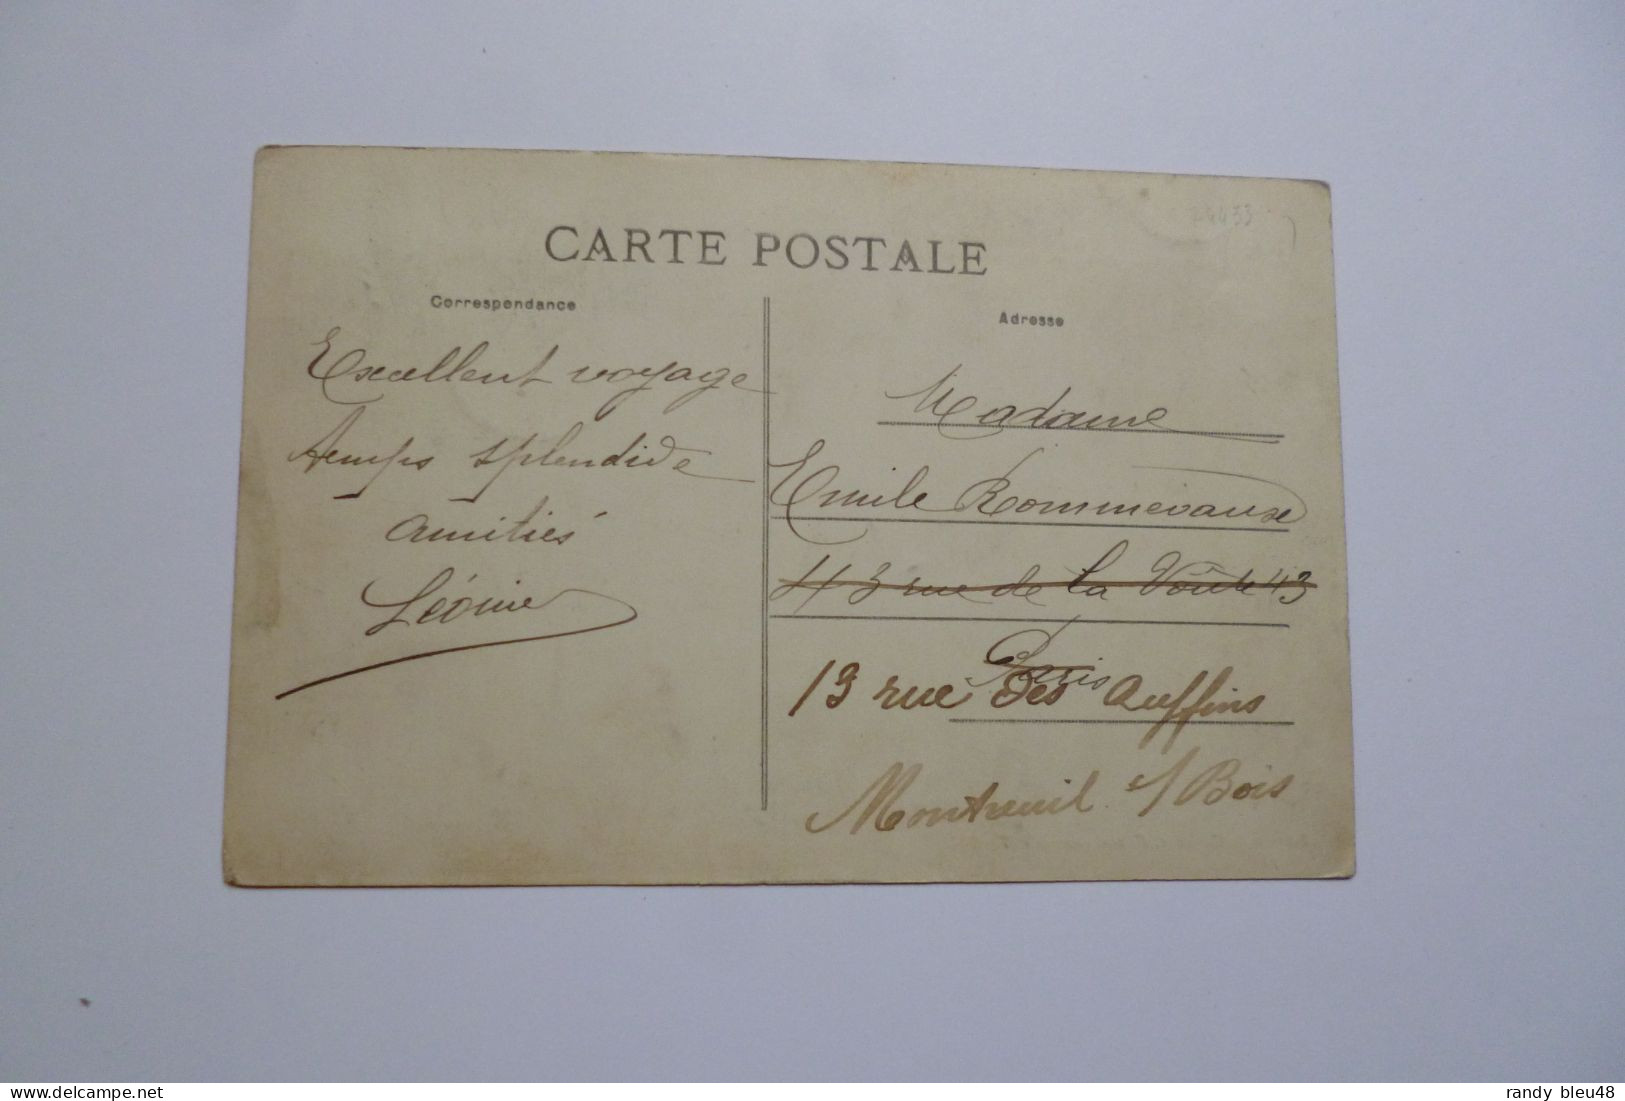 24433
CARTE POSTALE
Correspondance
Adresse
Excellent voyage
temps splendide
amitiés
Léonie
Madame
Emile Rommevaux
43 rue de la Voûte 43
Paris
13 rue des Ruffins
Montreuil s/Bois
randy bleu48